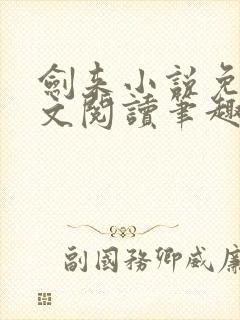 劍来小說免
文閱讀筆趣
副國務卿威廉